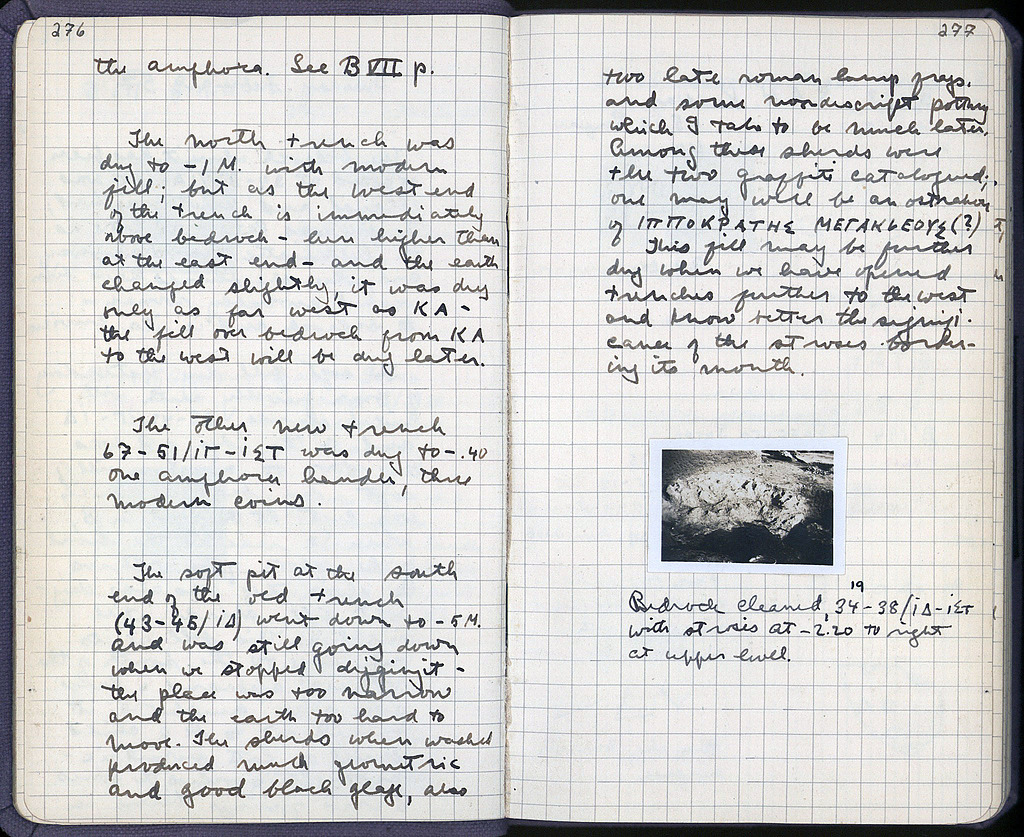 276
the amphora. See B VII p.
The north trench was
dug to -1 M. with modern
fill; but as the west end
of the trench is immediately
above bedrock - here higher than
at the east end - and the earth
changed slightly, it was dug
only as far west as KA -
the fill over bedrock from KA
to the west will be dug later.
The other new trench
67-51/ΙΓ-ΙΣΤ was dug to -.40
one amphora handle, three
modern coins.
The soft pit at the south
end of the old trench
(43-45/ΙΔ) went down to -5 M.
and was still going down
when we stopped digging it -
the place was too narrow
and the earth too hard to
move. The sherds when washed
produced much geometric
and good black glaze, also
277
two late roman lamp frags.
and some nondescript pottery
which I take to be much later.
Among these sherds were
the two graffiti catalogued;
one may well be an ostrakon
of ΙΠΠΟΚΡΑΤΗΣ ΜΕΓΑΚΛΕΟΥΣ(?)
This fill may be further
dug when we have opened
trenches further to the west
and know better the signifi-
cance of the stroses border-
ing its mouth.
19
Bedrock cleaned, 34-38/ΙΔ-ΙΣΤ
with strosis at -2.20 to right
at upper level.